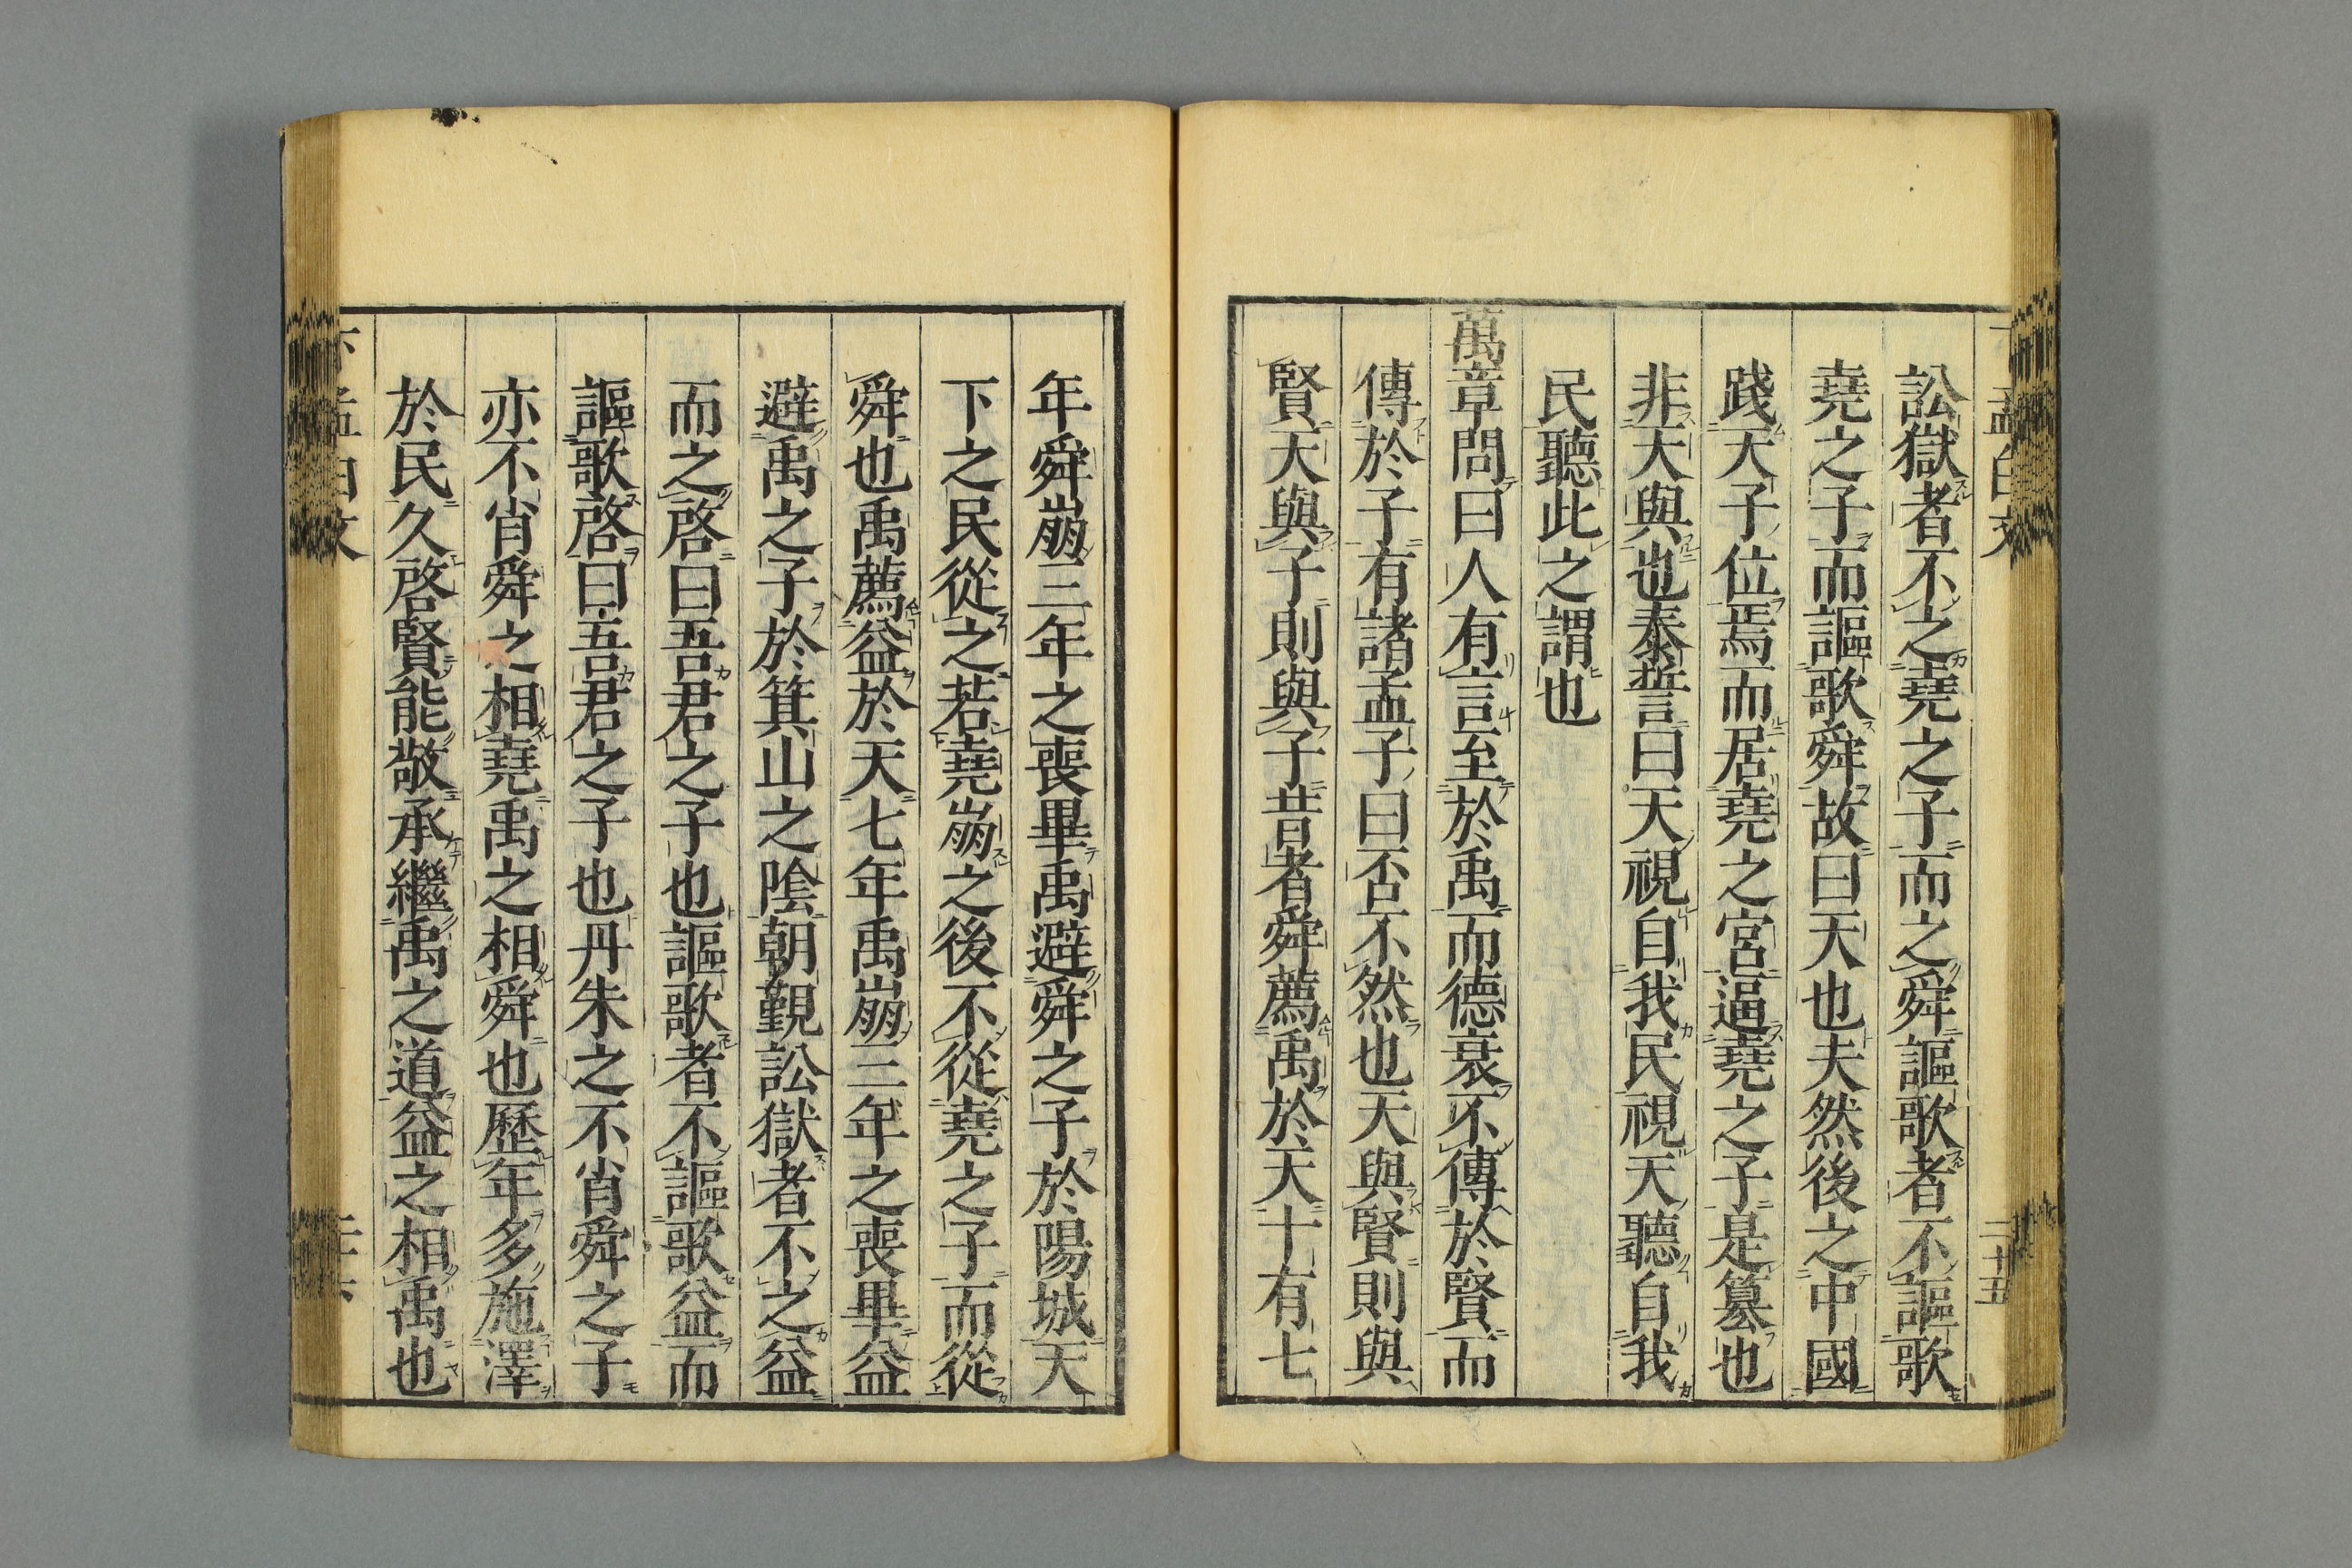 訟獄者不之堯之子而之舜謳歌者不謳歌
堯之子而謳歌舜故曰天也夫然後之中國
踐天子位焉而居堯之宮逼堯之子是篡也
非天與也泰誓曰天視自我民視天聽自我
民聽此之謂也
萬章問曰人有言至於禹而德衰不傳於賢而
傳於子有諸孟子曰否不然也天與賢則與
賢天與子則與子昔者舜薦禹於天十有七
年舜崩三年之喪畢禹避舜之子於陽城天
下之民從之若堯崩之後不從堯之子而從
舜也禹薦益於天七年禹崩三年之喪畢益
避禹之子於箕山之陰朝覲訟獄者不之益
而之啓曰吾君之子也謳歌者不謳歌益而
謳歌啓曰吾君之子也丹朱之不肖舜之子
亦不肖舜之相堯禹之相舜也歷年多施澤
於民久啓賢能敬承繼禹之道益之相禹也